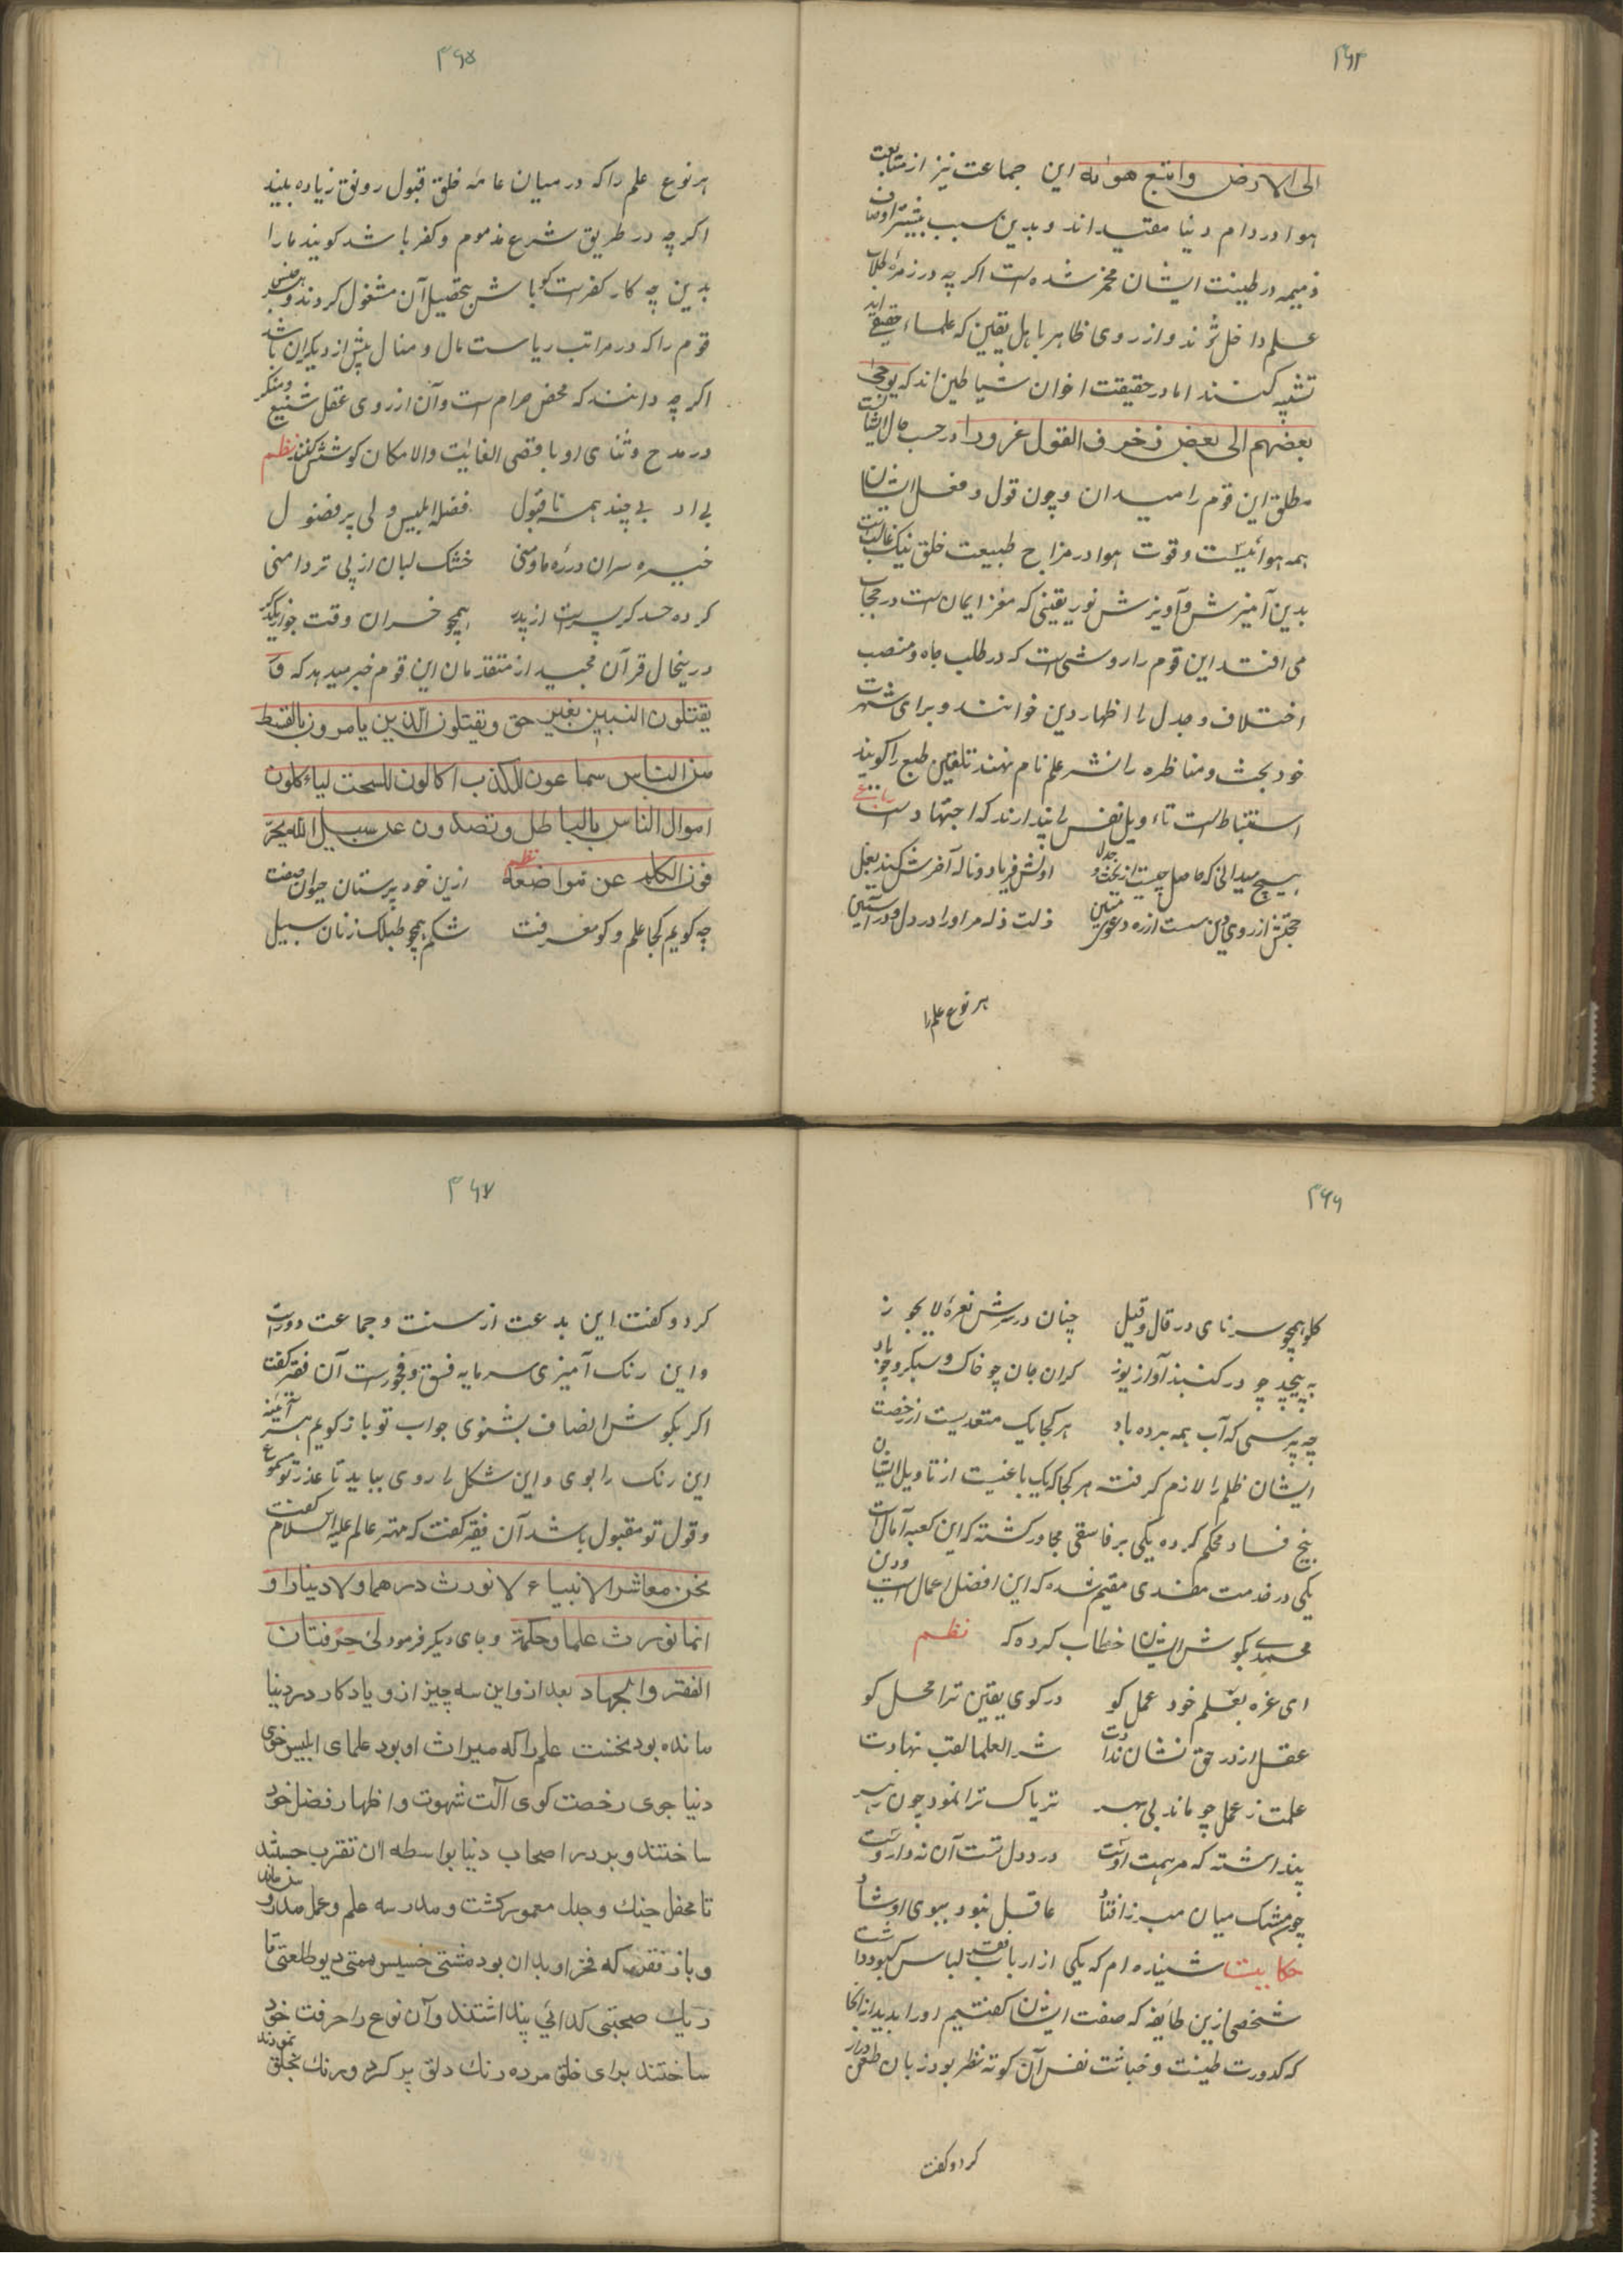 ۴۶۴
الی الارض واتبع هواه این جماعت نیز از متابعت
هوا در دام دنیا مقید اند و بدین سبب بیشتر اوصاف
ذمیمه در طینت ایشان مخمر شده است اکر چه در زمرۀ طلاب
علم داخل شوند و از روی ظاهر باهل یقین که علماء حقیقی اند
تشبه کنند اما در حقیقت اخوان شیاطین اند که یوحی
بعضهم الی بعض زخرف القول غرورا در حسب حال ایشانست
مطلق این قوم را میدان و چون قول و فعل ایشان
همه هوائیست و قوت هوا در مزاج طبیعت خلق نیک غالبست
بدین آمیزش و آویزش نور یقینی که مغز ایمان است در حجاب
می افتد این قوم را روشی است که در طلب جاه و منصب
اختلاف و جدل را اظهار دین خوانند و برای شهرت
خود بحث و مناظره را نشر علم نام نهند تلقین طبع را کویند
استنباط است تاء ویل نفس را پندارند که اجتهاد است رباعی
هیچ میدانی که حاصل چیست از بحث و جدل اولش فریاد و ناله آخرش کند بغل
حجتش از روی دین سست از ره دعوی متین ذلت ذله مر او را در دل و در آستین
هر نوع علم را
۴۶۵
هر نوع علم را که در میان عامه خلق قبول رونق زیاده بیند
اکر چه در طریق شرع مذموم و کفر باشد کویند ما را
بدین چه کار کفرست کو باش بتحصیل آن مشغول کردند و هر جنس
قوم را که در مراتب ریاست مال و منال بیش از دیکران باشد
اکر چه دانند که محض حرام است و آن از روی عقل شنیع و منکر
در مدح و ثنای او باقصی الغایت والامکان کوشش کنند نظم
بی اد بی چند همه نا قبول فضله ابلیس ولی پر فضول
خیره سران در ره ما و منی خشک لبان از پی تر دامنی
کرده حسد کر پسرست از پدر همچو خسران وقت جو از یکدکر
درینحال قرآن مجید از متقدمان این قوم خبر میدهد که و
یقتلون النبین بغیر حق ویقتلون الذین یامرون بالقسط
من الناس سماعون للکذب اکالون للسحت لیاءکلون
اموال الناس بالباطل ویصدون عن سبیل الله یحر
فون الکلم عن مواضعه نظم ازین خود پرستان حیوان صفت
چه کویم کجا علم و کو معرفت شکم همچو طبلک زنان سبیل
۴۶۶
کلو همچو سرنای در قال و قیل چنان در سرش نعرۀ لا یجوز
به پیچد چو در کنبذ آواز یوز کران جان چو خاک و سبکرو چو باد
چه پرسی که آب همه برده باد هر کجا یک متعدیست از رخصت
ایشان ظلم را لازم کرفته هر کجا که یک باغیست از تاویل ایشان
بیخ فساد محکم کرده یکی بر فاسقی مجاور کشته که این کعبه آمالست
یکی در خدمت مفسدی مقیم شده که این افضل اعمال است و دین
محمدی بکوش ایشان خطاب کرده که نظم
ای غره بعلم خود عمل کو در کوی یقین ترا محل کو
عقل از در حق نشان ندادت شر العلما لقب نهادت
علمت ز عمل چو ماند بی بهر تریاک ترا نمود چون زهر
پنداشته که مرهمت اوست درد دل تست آن نه داروست
چون مشک میان مبرز افتاد عاقل نبود ببوی او شاد
حکایت شنیده ام که یکی از ارباب فقر لباس کبود داشت
شخصی ازین طایفه که صفت ایشان کفتیم او را بدید از انجا
که کدورت طینت و خباثت نفس آن کوته نظر بود زبان طعن دراز
کرد و کفت
۴۶۷
کرد و کفت این بدعت از سنت و جماعت دورست
و این رنک آمیزی سرمایه فسق و فجورست آن فقیر کفت
اکر بکوش انصاف بشنوی جواب تو باز کویم هر آئینه
این رنک را بوی و این شکل را روی بباید تا عذر تو مسموع
و قول تو مقبول باشد آن فقیر کفت که مهتر عالم علیه السلام کفت
نحن معاشر الانبیاء لا نورث درهما ولا دینارا و
انما نورث علما وحکمة و جای دیکر فرمود لی حرفتان
الفقر والجهاد بعد از و این سه چیز ازو یادکار در دنیا
مانده بود نخست علم را که میراث او بود علمای ابلیس خوی
دنیا جوی رخصت کوی آلت شهوت و اظهار فضل خود
ساختند و بر در اصحاب دنیا بواسطه آن تقرب جستند
تا محفل جنک و جدل معمور کشت و مدرسه علم و عمل مندرس ماند
و باز فقر که فخر او بدان بود مشتی خسیس همتی دیو طلعتی
ریک صحبتی کدائی پنداشتند و آن نوع را حرفت خود
ساختند برای خلق مرده رنک دلق پر کرد و برنک بخلق نمودند